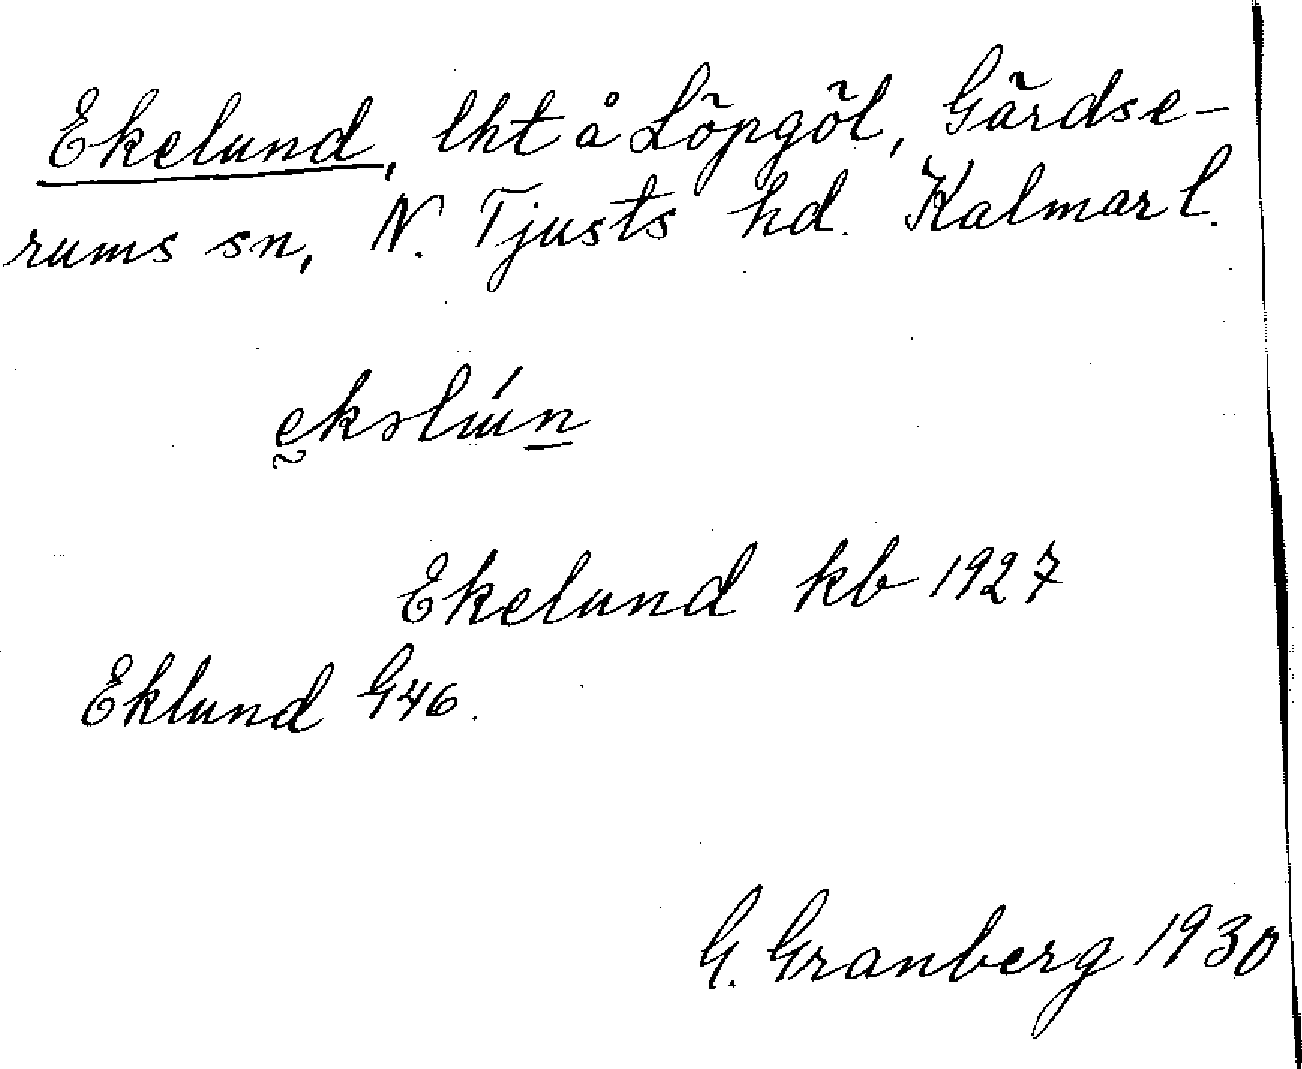 Ekelund, lht å Löpgöl, Gärdse-
rums sn, N. Tjusts hd. Kalmar l.
Ekelund kb 1927
Eklund G46.
G. Granberg 1930